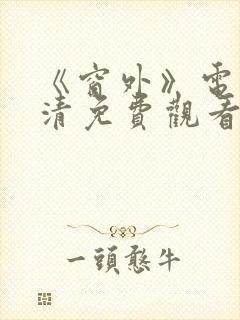 《窗外》電
清免費觀看
一頭憨牛